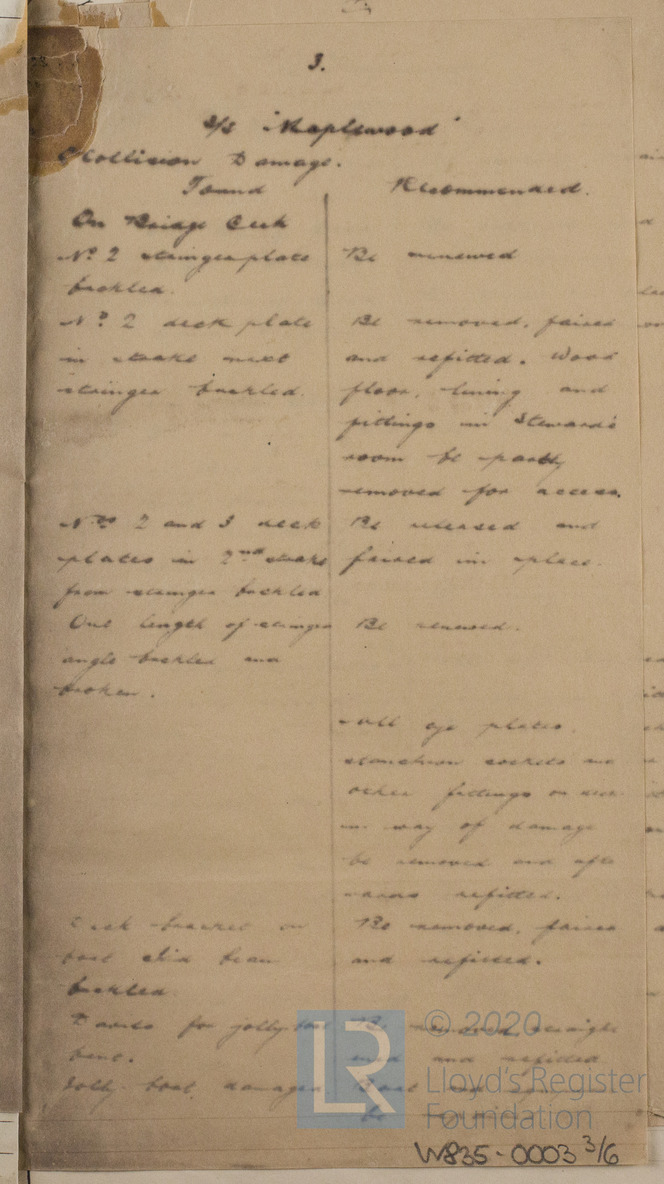 3.
s/s "Maplewood"
Collision Damage.
Found
Recommended.
On Bridge Deck
No. 2 stringer plate
buckled.
Be renewed
No. 2 deck plate
in strake next
stringer buckled.
Be removed, faired
and refitted. Wood
floor, lining and
fittings in Steward's
room be partly
removed for access.
Nos. 2 and 3 deck
plates in 2nd strake
from stringer buckled
Be released and
faired in place.
One length of stringer
angle buckled and
broken.
Be renewed.
All eye plates,
stanchion sockets and
other fittings on deck
in way of damage
be removed and after
wards refitted.
Deck bracket on
boat skid beam
buckled
Be removed, faired
and refitted.
Davits for jolly boat
bent.
Be removed, straight
ened and refitted
Jolly boat, damaged
Boat
be
LR
© 2020
Lloyd's Register
Foundation
W835-0003 3/6